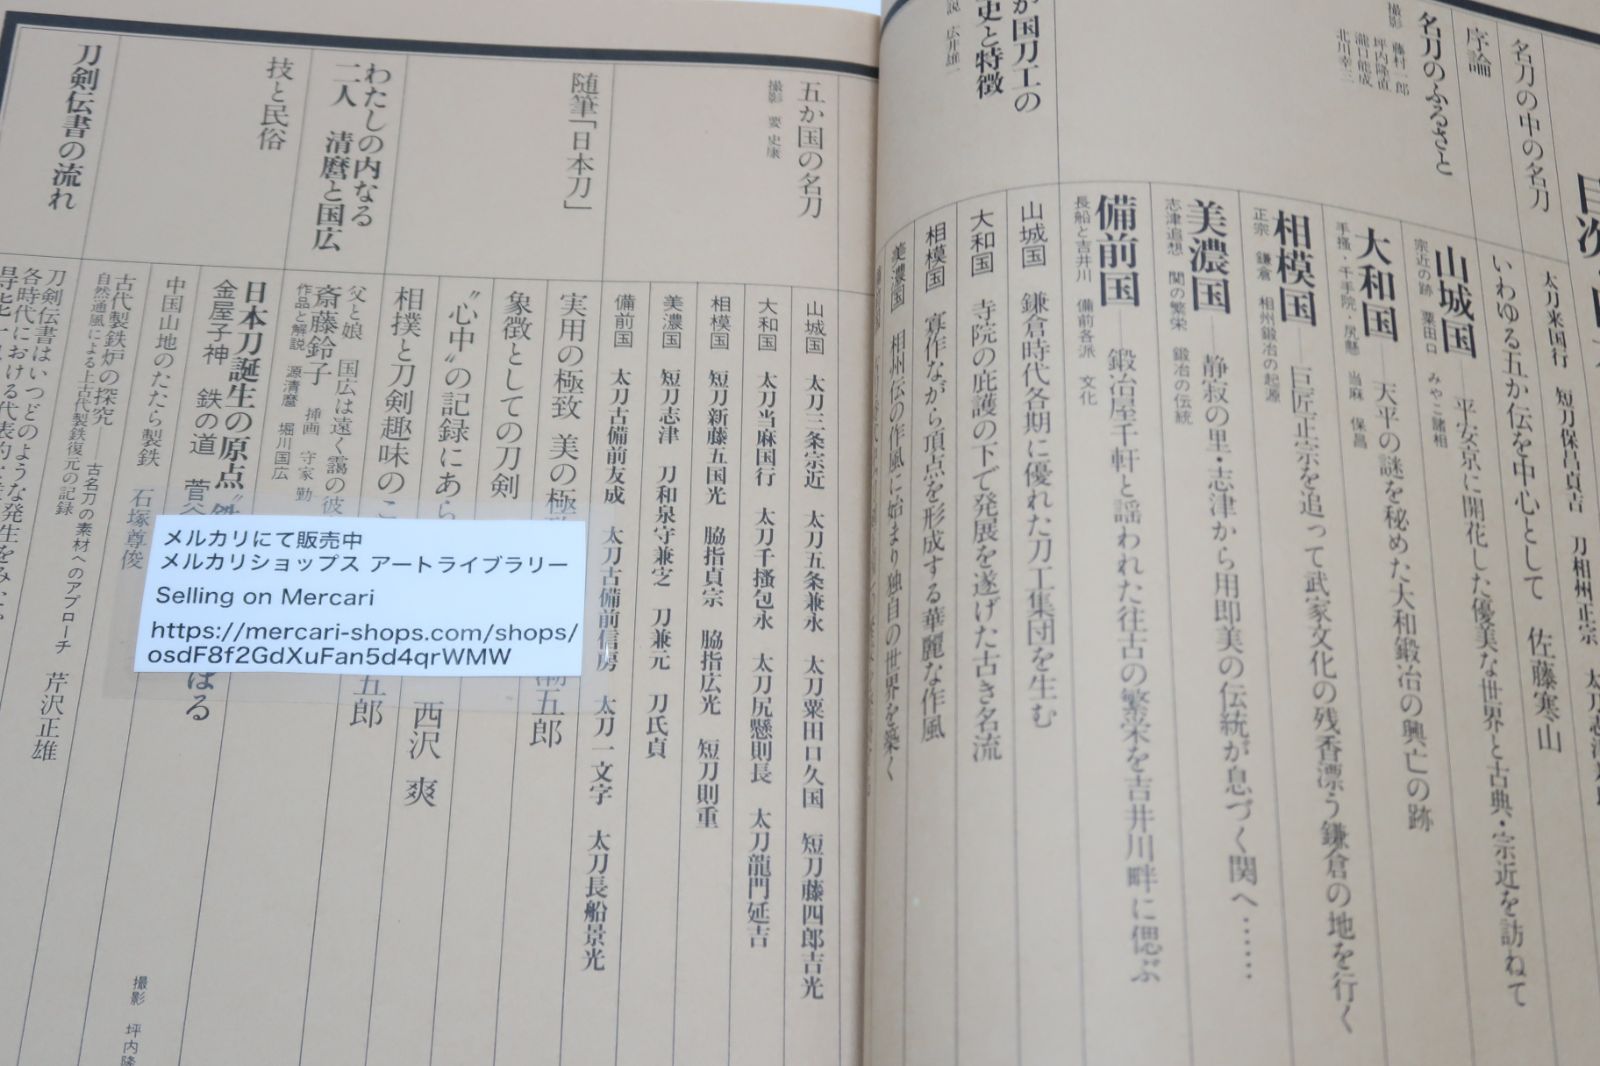 名刀の中の名刀
太刀来国行 短刀保昌貞吉 刀相州正宗
序論
いわゆる五か伝を中心として 佐藤寒山
名刀のふるさと
撮影 藤村一郎
坪内隆直
瀧口能成
北川幸三
山城国 平安京に開花した優美な世界と古典・宗近を訪ねて
宗近の跡 粟田口 みやこ諸相
大和国 天平の謎を秘めた大和鍛冶の興亡の跡
手搔・千手院・尻懸 当麻 保昌
相模国 巨匠正宗を追って武家文化の残香漂う鎌倉の地を行く
正宗 鎌倉 相州鍛冶の起源
美濃国 静寂の里・志津から用即美の伝統が息づく関へ……
志津追想 関の繁栄 鍛冶の伝統
備前国 鍛冶屋千軒と謡われた往古の繁栄を吉井川畔に偲ぶ
長船と吉井川 備前各派 文化
か国刀工の
史と特徴
説 広井雄一
山城国 鎌倉時代各期に優れた刀工集団を生む
大和国 寺院の庇護の下で発展を遂げた古き名流
相模国 寡作ながら頂点を形成する華麗な作風
美濃国 相州伝の作風に始まり独自の世界を築く
五か国の名刀
撮影 要 史康
山城国 太刀三条宗近 太刀五条兼永 太刀粟田口久国 短刀藤四郎吉光
大和国 太刀当麻国行 太刀千搔包永 太刀尻懸則長 太刀龍門延吉
相模国 短刀新藤五国光 脇指貞宗 脇指広光 短刀則重
美濃国 短刀志津 刀和泉守兼定 刀兼元 刀氏貞
備前国 太刀古備前友成 太刀古備前信房 太刀一文字 太刀長船景光
随筆「日本刀」
実用の極致 美の極
五郎
象徴としての刀剣
“心中”の記録にあら
相撲と刀剣趣味のこ
西沢 爽
わたしの内なる
二人 清麿と国広
父と娘 国広は遠く靄の彼
五郎
斎藤鈴子 挿画 守家 勤
作品と解説 源清麿 堀川国広
技と民俗
日本刀誕生の原点“鉄
金屋子神 鉄の道 菅谷
ばる
中国山地のたたら製鉄 石塚尊俊
古代製鉄炉の探究――古名刀の素材へのアプローチ 芹沢正雄
自然通風による上古代製鉄復元の記録
撮影 坪内隆
刀剣伝書の流れ
刀剣伝書はいつどのような発生をみ
各時代における代表的
メルカリにて販売中
メルカリショップス アートライブラリー
Selling on Mercari
https://mercari-shops.com/shops/
osdF8f2GdXuFan5d4qrWMW